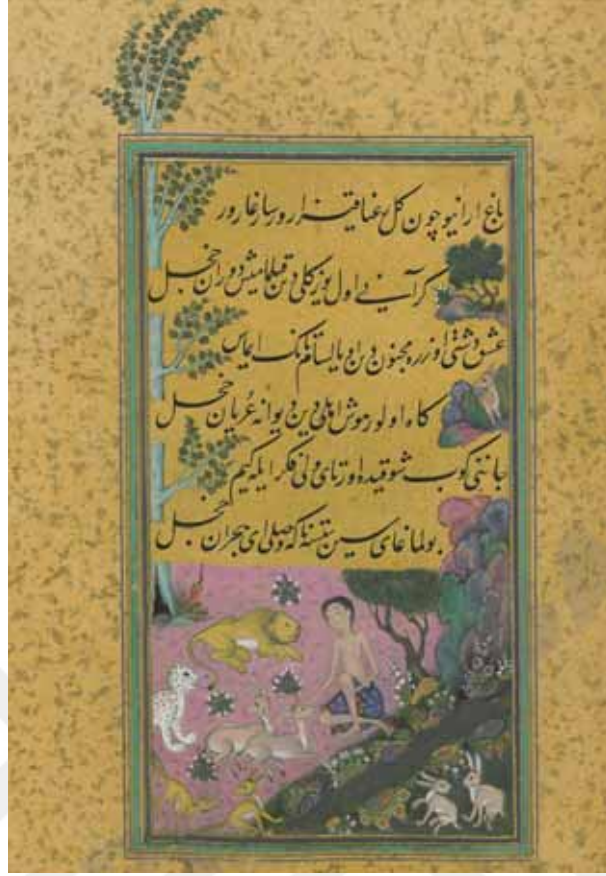 باغ ارا نیوچون کل رعنا قیزارور سارغارور
کر آنی اول یوز کلی دین قیلمامیش دوران خجل
عشق دشتی اوزره مجنون دین اویالسام تانک ایماس
کاه اولور هوش اهلی دین دیوانه عریان خجل
جاننی کوب شوقیدا اورتای ولی فکر ایله کیم
بولماغای سین ناکه وصلی ای هجران خجل